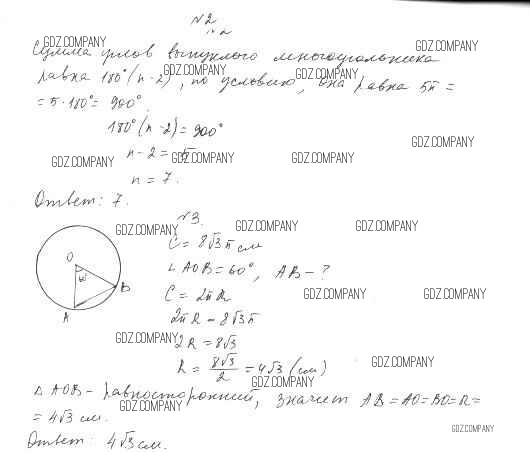 №2
GDZ.COMPANY
Сумма углов выпуклого многоугольника
GDZ.COMPANY
равна 180°(n-2), по условию, она равна 5π =
GDZ.COMPANY GDZ.COMPANY
= 5·180° = 900°.
180°(n-2) = 900°
GDZ.COMPANY
n-2 = 5
GDZ.COMPANY GDZ.COMPANY GDZ.COMPANY
n = 7.
Ответ: 7.
№3.
GDZ.COMPANY GDZ.COMPANY GDZ.COMPANY
C = 8√3 π см
O
60°
B
A
∠AOB = 60°, AB - ?
C = 2πR
GDZ.COMPANY GDZ.COMPANY
2πR = 8√3π
GDZ.COMPANY
2R = 8√3
R = 8√3/2 = 4√3 (см)
GDZ.COMPANY
GDZ.COMPANY
△AOB - равносторонний, значит AB = AO = BO = R =
GDZ.COMPANY
= 4√3 см.
GDZ.COMPANY
Ответ: 4√3 см.